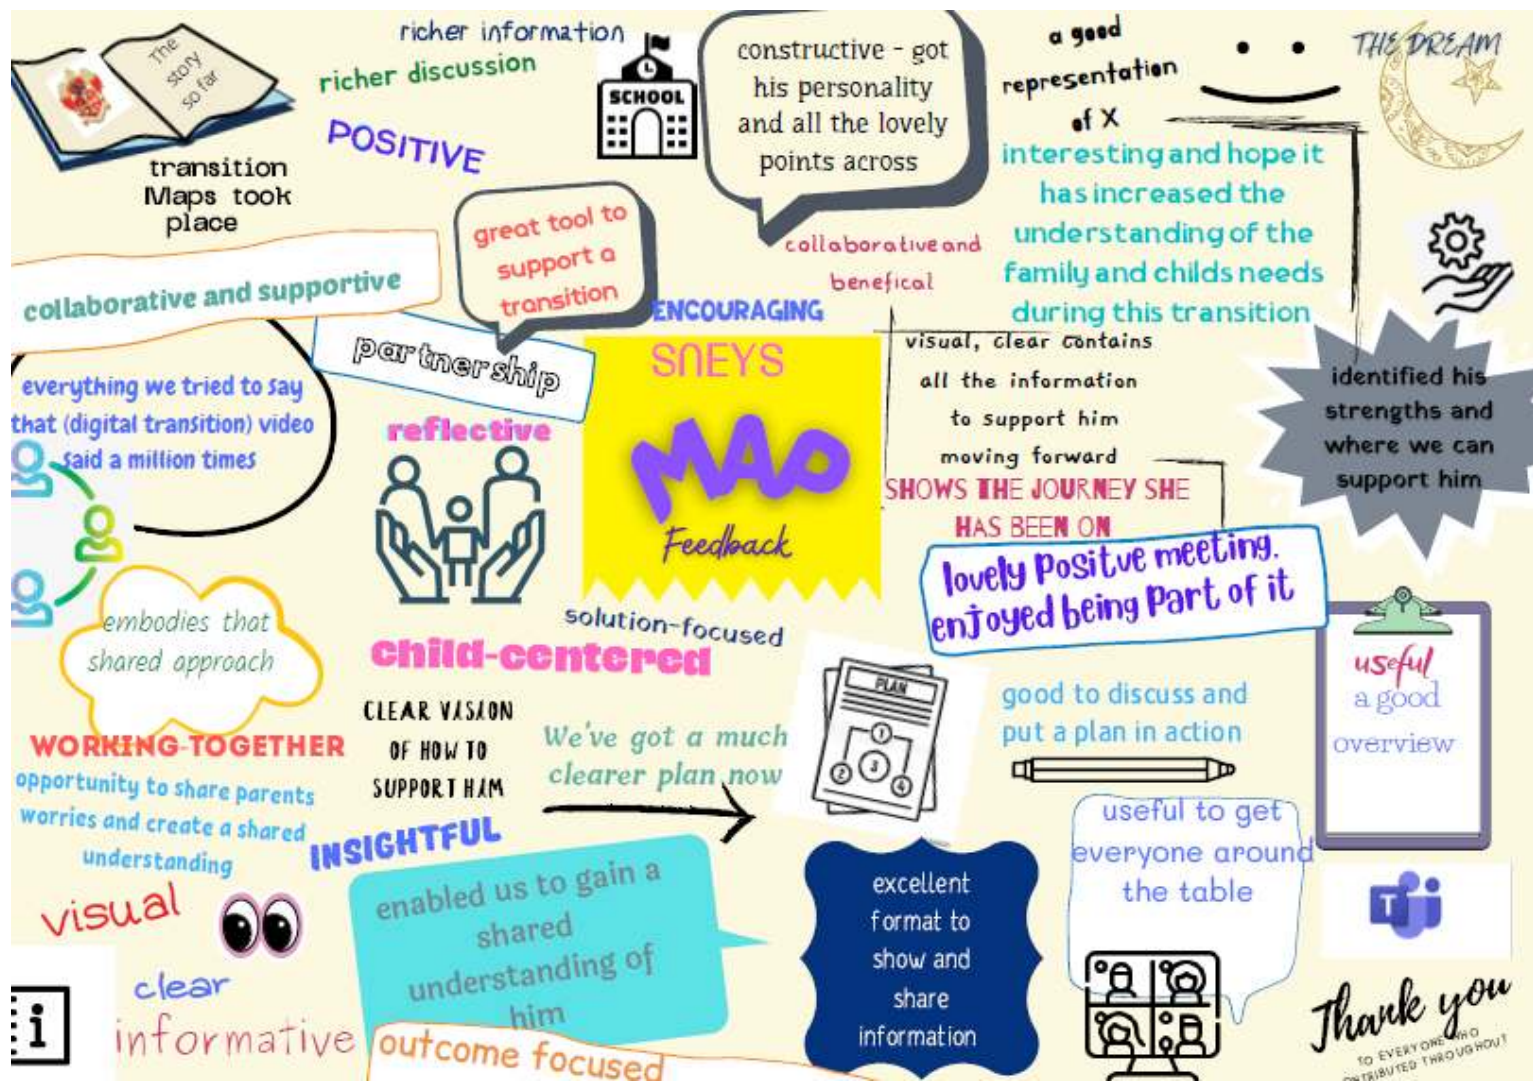 The
story
so far
transition
Maps took
place
richer information
richer discussion
POSITIVE
SCHOOL
constructive - got
his personality
and all the lovely
points across
a good
representation
of X
THE DREAM
interesting and hope it
has increased the
understanding of the
family and childs needs
during this transition
collaborative and supportive
great tool to
support a
transition
collaborative and
benefical
ENCOURAGING
partnership
everything we tried to say
that (digital transition) video
said a million times
reflective
SNEYS
MAP
Feedback
visual, clear contains
all the information
to support him
moving forward
SHOWS THE JOURNEY SHE
HAS BEEN ON
identified his
strengths and
where we can
support him
lovely Positve meeting.
enjoyed being Part of it
embodies that
shared approach
solution-focused
child-centered
CLEAR VISION
OF HOW TO
SUPPORT HIM
We've got a much
clearer plan now
PLAN
1
2
3
4
good to discuss and
put a plan in action
useful
a good
overview
WORKING-TOGETHER
opportunity to share parents
worries and create a shared
understanding
INSIGHTFUL
enabled us to gain a
shared
understanding of
him
excellent
format to
show and
share
information
useful to get
everyone around
the table
T
visual
clear
i
informative
outcome focused
Thank you
TO EVERYONE WHO
CONTRIBUTED THROUGHOUT